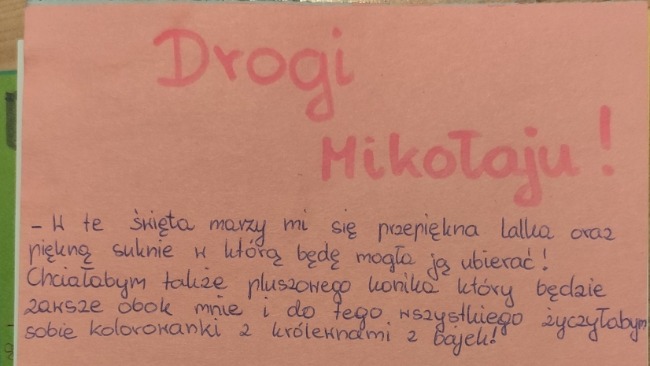 Drogi
Mikołaju!
- W te święta marzy mi się przepiękna lalka oraz
piękną suknie w którą będę mogła ją ubierać!
Chciałabym także pluszowego konika który będzie
zawsze obok mnie i do tego wszystkiego życzyłabym
sobie kolorowanki z królewnami z bajek!